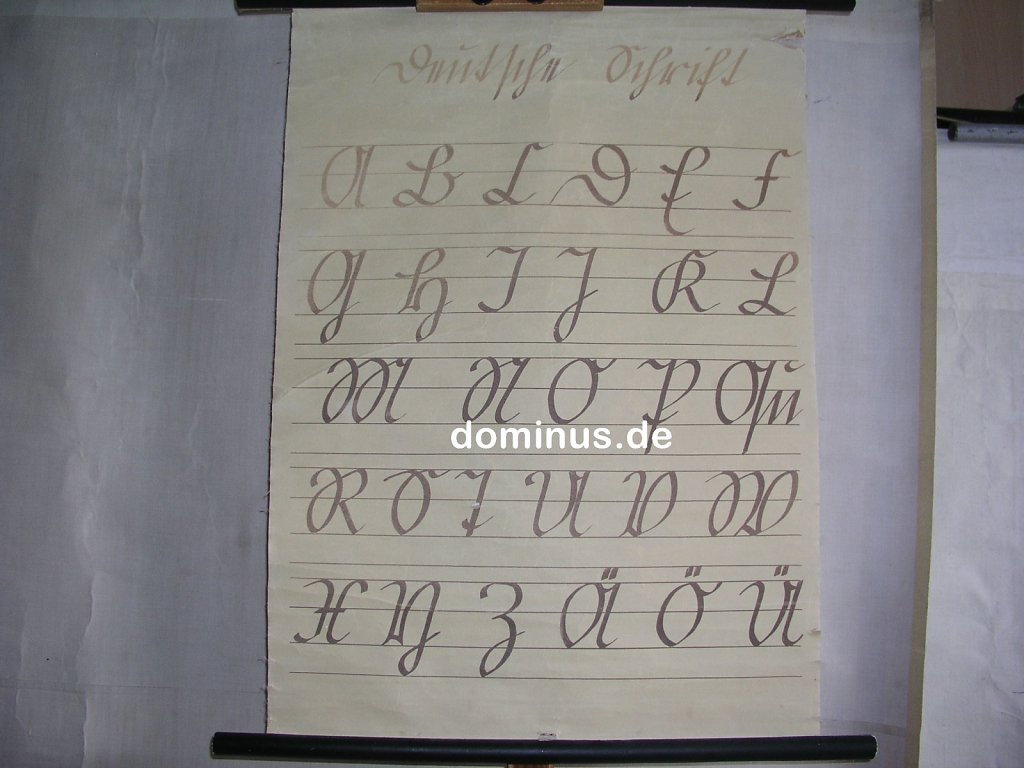 Deutsche Schrift
A B C D E F
G H I J K L
M N O P Qu
dominus.de
R S T U V W
X Y Z Ä Ö Ü